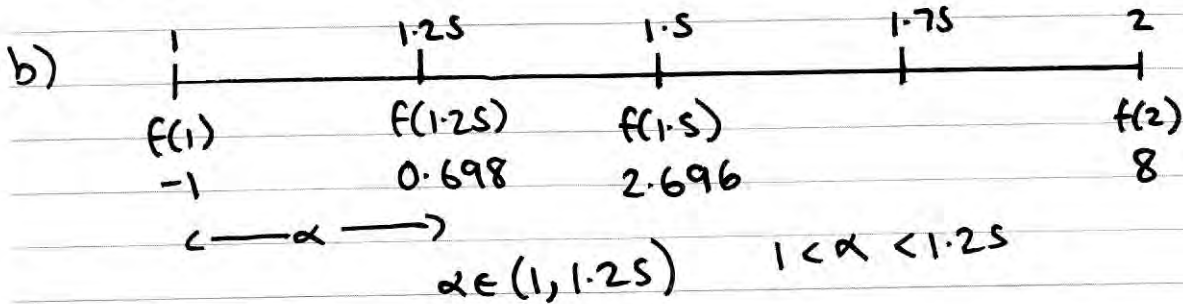 1 1.25 1.5 1.75 2
b)
f(1) f(1.25) f(1.5) f(2)
-1 0.698 2.696 8
<—α—>
α∈(1, 1.25) 1<α<1.25